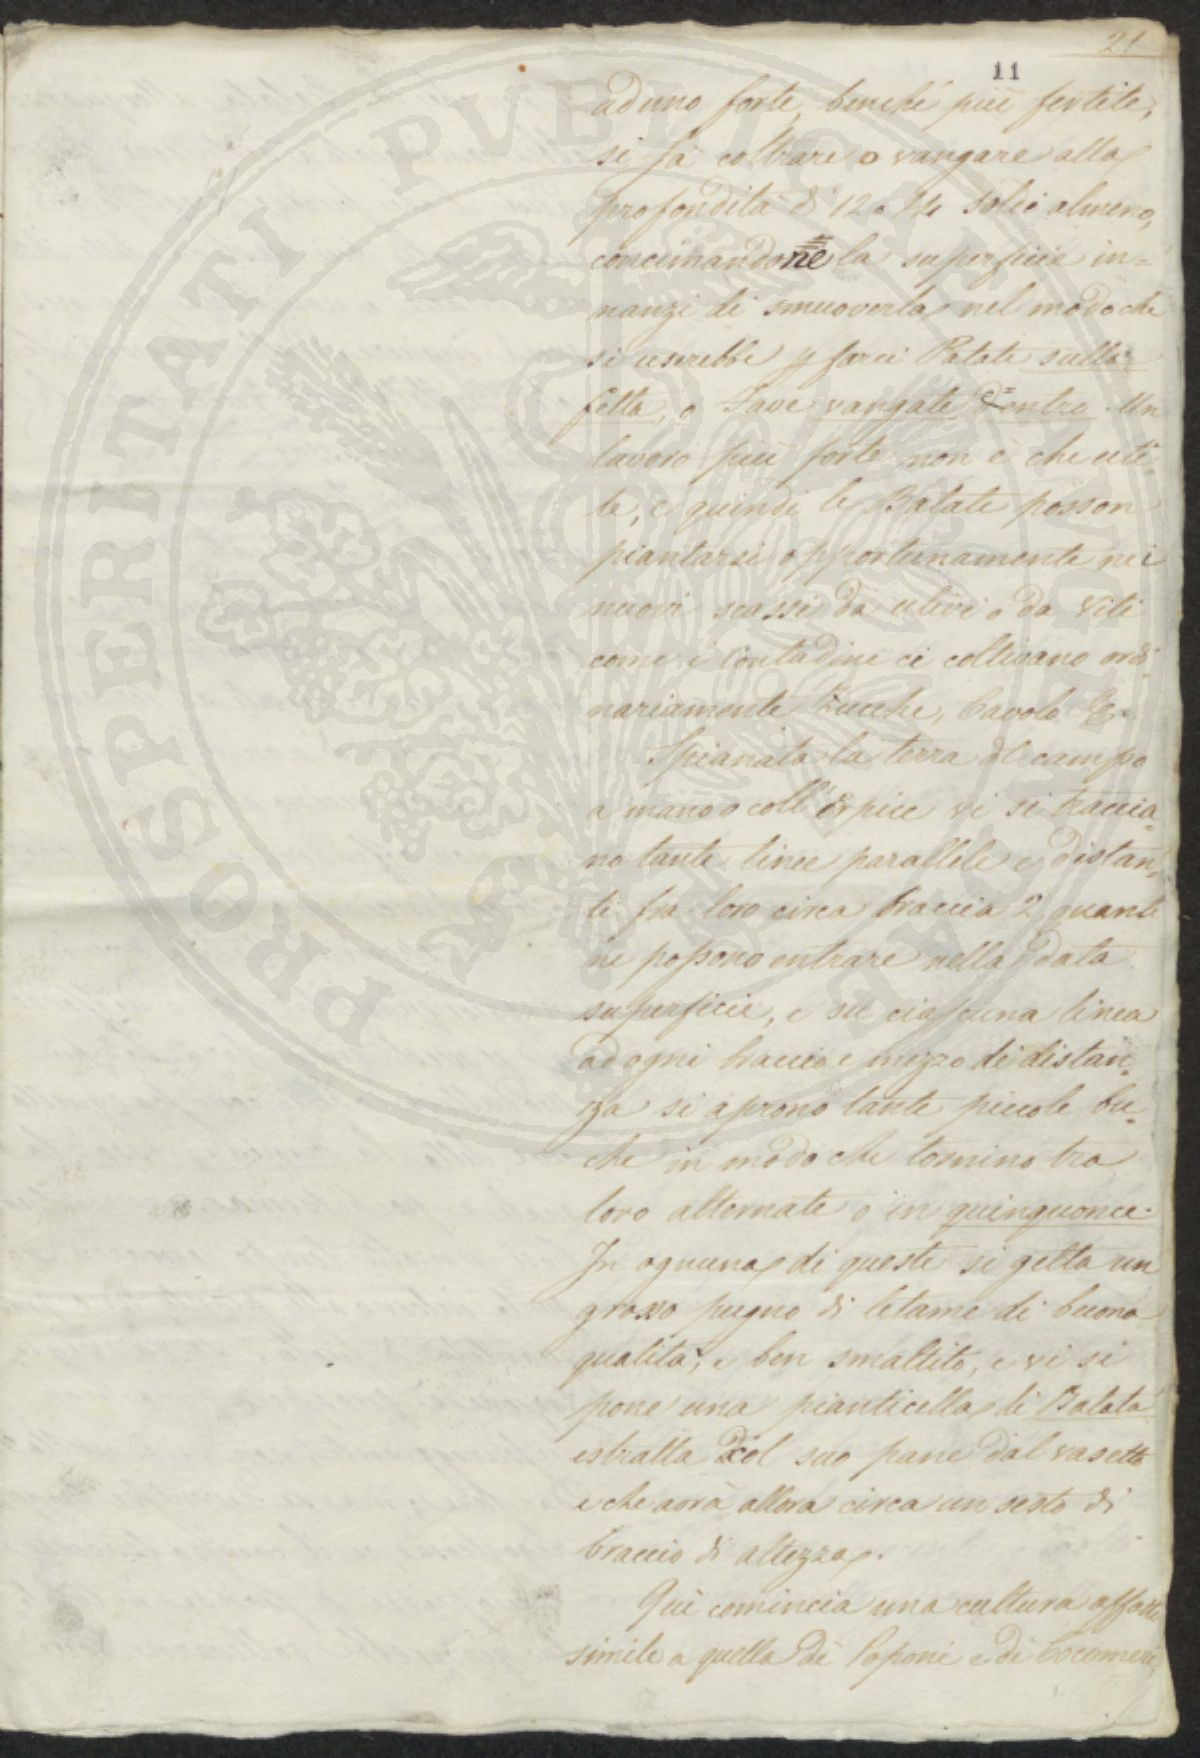 21
11
ad uno forte, benché più fertile,
si fà coltrare o vangare alla
profondità di 12 o 14 soldi almeno,
concimandone la superficie in=
nanzi di smuoverla, nel modo che
si userebbe p farci Patate sulla
fetta, o Fave vangate d=entro. Un
lavoro più forte non è che uti=
le, e quindi le Batate posson
piantarsi opportunamente nei
nuovi scassi da ulivi o da viti
come i Contadini ci coltivano ordi=
nariamente Zucche, Cavolo &c.
Spianata la terra del campo
a mano o coll'erpice vi si traccia=
no tante linee parallele e distan=
ti fra loro circa braccia 2 quante
ne possono entrare nella data
superficie, e su ciascuna linea
ad ogni braccio e mezzo di distan=
za si aprono tante piccole bu=
che in modo che tornino tra
loro alternate o in quinquonce.
In ognuna di queste si getta un
grosso pugno di letame di buona
qualità, e ben smaltito, e vi si
pone una pianticella di Batata
estratta col suo pane dal vasetto
e che avrà allora circa un sesto di
braccio di altezza.
Quì comincia una cultura affatto
simile a quella di Poponi e di Cocomeri,
PROSPERITATI PUBLICAE AUGENDAE